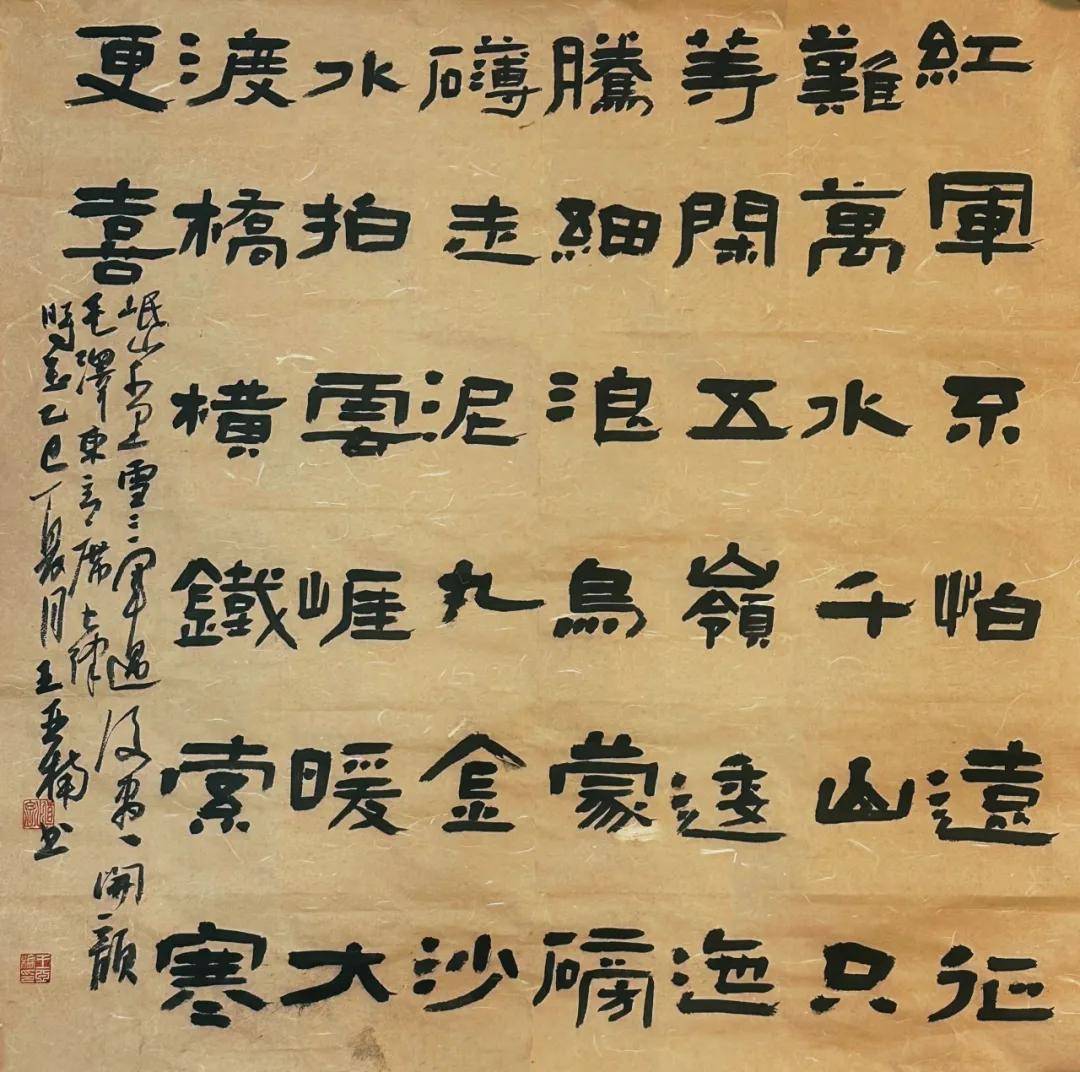 紅軍不怕遠征
難萬水千山只
等閑五嶺逶迤
騰細浪烏蒙磅
礴走泥丸金沙
水拍雲崖暖大
渡橋橫鐵索寒
更喜
岷山千里雪三軍過後盡開顏
毛澤東主席七律
時在乙巳丁月王亞楠書